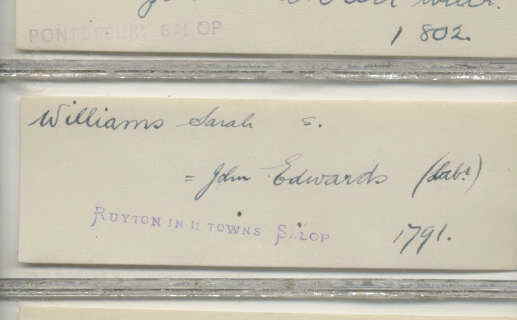 PONTESBURY SALOP
1802.
Williams Sarah s.
= John Edwards (labr)
RUYTON IN 11 TOWNS SALOP
1791.